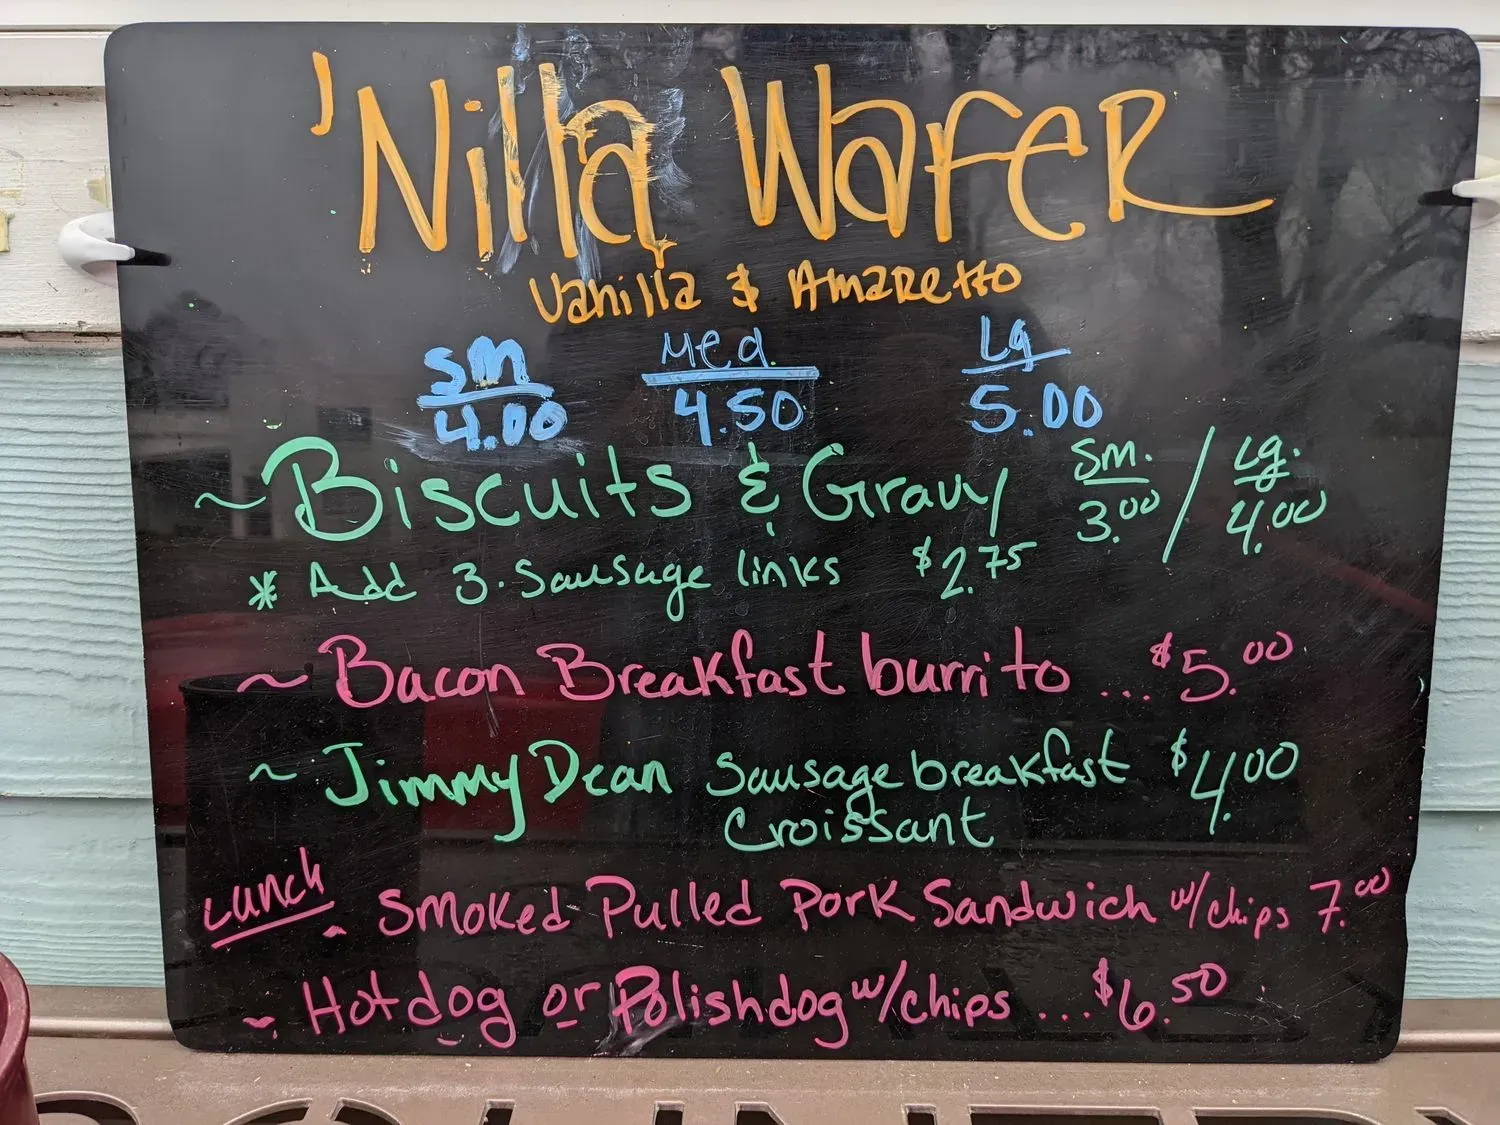 'Nilla Wafer
Vanilla & Amaretto
Sm Med. Lg
4.00 4.50 5.00
~Biscuits & Gravy Sm. 3.00 / Lg. 4.00
* Add 3. Sausage links $2.75
~ Bacon Breakfast burrito ... $5.00
~ Jimmy Dean Sausage breakfast $4.00
Croissant
Lunch ~ Smoked Pulled Pork Sandwich w/chips 7.00
~ Hotdog or Polishdog w/chips ... $6.50